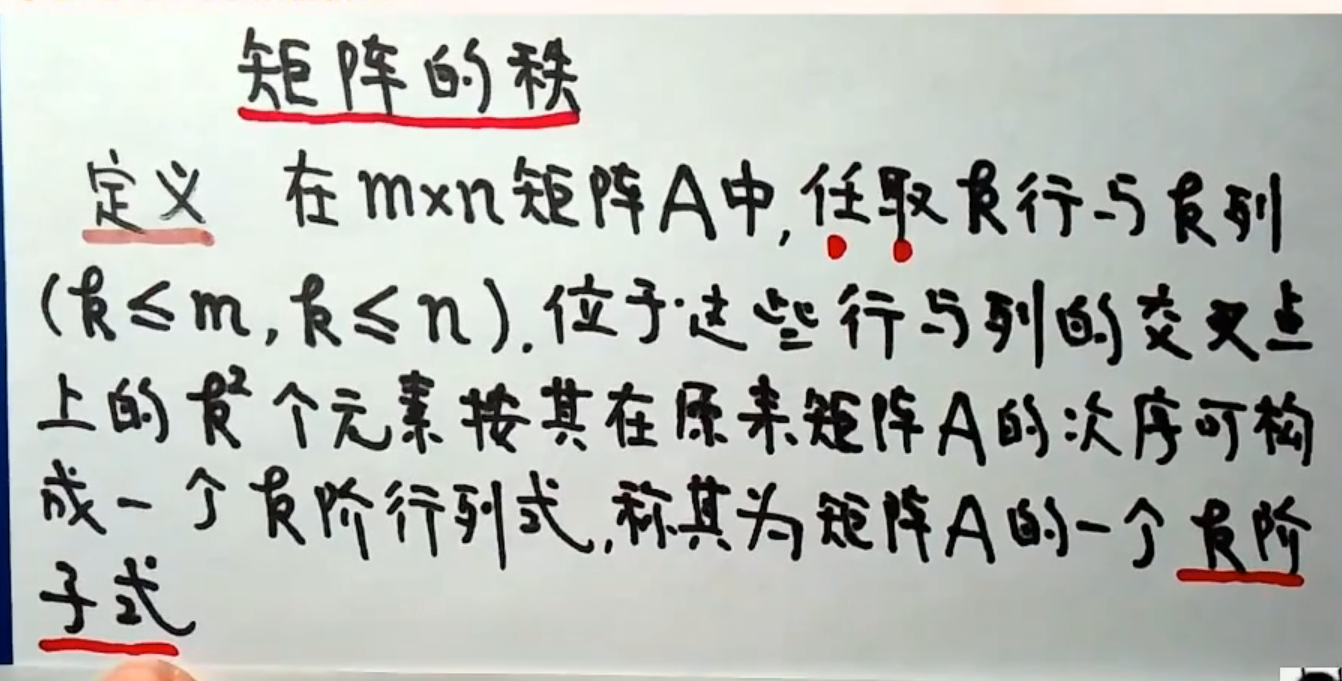 矩阵的秩
定义 在m×n矩阵A中,任取k行与k列
(k≤m,k≤n).位于这些行与列的交叉点
上的k²个元素按其在原来矩阵A的次序可构
成一个k阶行列式,称其为矩阵A的一个k阶
子式